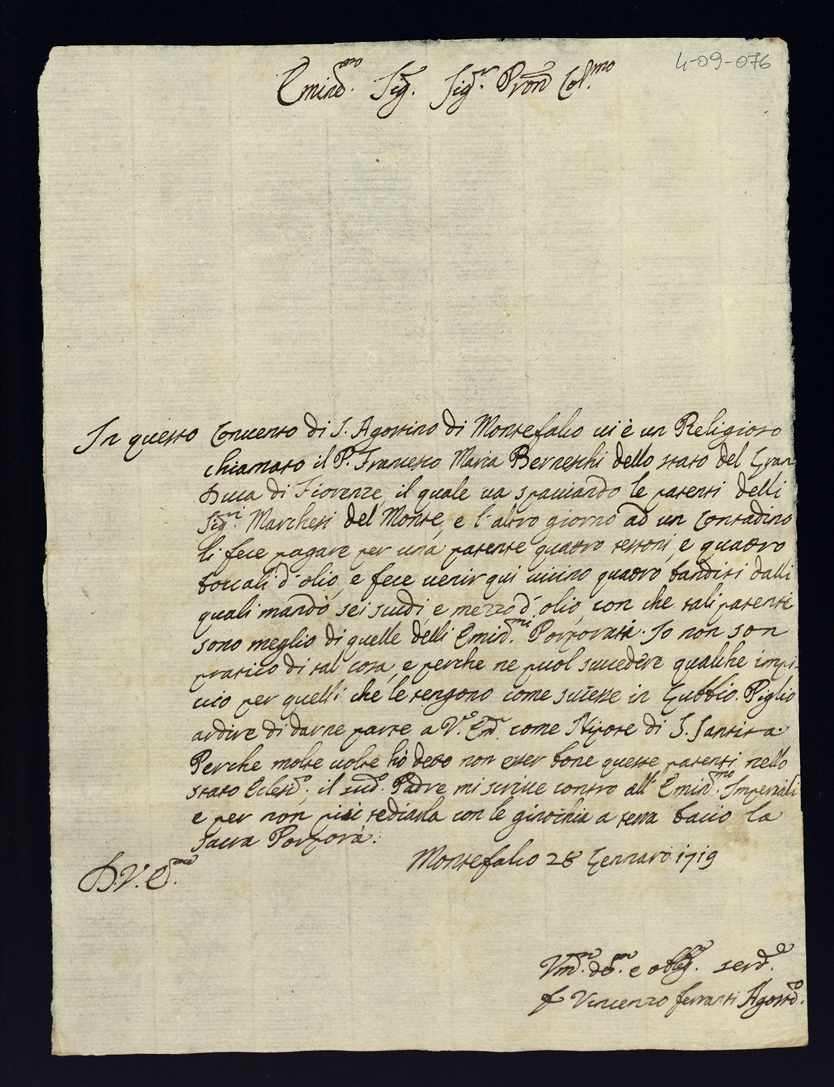 4-09-076
Emind.mo Sig. Sig.r Pron Col.mo
In questo Convento di S. Agostino di Montefalco vi è un Religioso
chiamato il P. Francesco Maria Berneschi dello stato del Gran
Duca di Fiorenze, il quale va spacciando le patenti delli
Sig.ri Marchesi del Monte, e l'altro giorno ad un Contadino
li fece pagare per una patente quattro testoni, e quattro
boccali d'olio, e fece venir qui vicino quattro banditi dalli
quali mandò sei scudi, e mezzo d'olio, con che tali patenti
sono meglio di quelle delli Emid.mi Porporati. Io non son
pratico di tal cosa, e perche ne puol succedere qualche impi
cio per quelli che le tengono come sucesse in Gubbio. Piglio
ardire di darne parte a V.a Em. come Nipote di S. Santita.
Perche molte volte hò detto non esser bone queste patenti nello
stato Eclest.o, il sud.o Padre mi scrive contro all'Emin.mo Imperiali
e per non più tediarla con le ginochia a terra bacio la
Sacra Porpora.
Montefalco 28 Gennaro 1719
D. V. E.
Um.mo de.mo e obblig. serd.e
f Vincenzo ferranti Agost.o